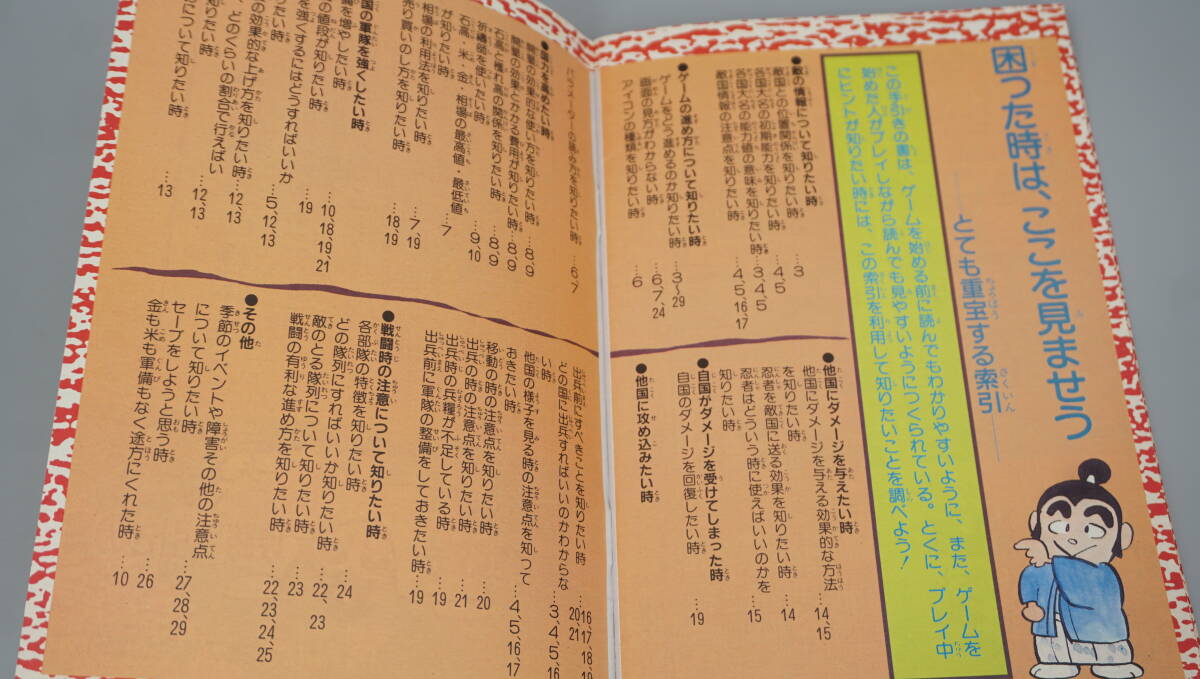 困った時は、ここを見ませう
とても重宝する索引
この手引きの書は、ゲームを始める前に読んでもわかりやすいように、また、ゲームを
始めた人がプレイしながら読んでも見やすいようにつくられている。とくに、プレイ中
にヒントが知りたい時には、この索引を利用して知りたいことを調べよう!
●敵の情報について知りたい時
敵国との位置関係を知りたい時…3
各国大名の初期能力を知りたい時…4、5
各国大名の能力値の意味を知りたい時…3、4、5
敵国情報の注意点を知りたい時…4、5、16、17
●ゲームの進め方について知りたい時
ゲームをどう進めるのか知りたい時…3〜29
画面の見方がわからない時…6、7、24
アイコンの種類を知りたい時…6
●他国にダメージを与えたい時
他国にダメージを与える効果的な方法
を知りたい時…14、15
忍者を敵国に送る効果を知りたい時…14
忍者はどういう時に使えばいいのかを
知りたい時…15
●自国がダメージを受けてしまった時
自国のダメージを回復したい時…19
●他国に攻め込みたい時
パラメーターの見方を知りたい時…6、7
●国力を高めたい時
開墾の効果的な使い方を知りたい時…8、9
開墾の効果とかかる費用が知りたい時…8、9
石高と穫れ高の関係を知りたい時…8、9
祈禱師を使いたい時…9、10
石高・米・金・相場の最高値・最低値
が知りたい時…7
相場の利用法を知りたい時…7、19
売り買いのし方を知りたい時…18、19
国の軍隊を強くしたい時
を増やしたい時…10、18、19、21
の値段が知りたい時…19
を強くするにはどうすればいいか
りたい時…5、12、13
の効果的な上げ方を知りたい時…12、13
、どのくらいの割合で行えばい
知りたい時…12、13
について知りたい時…13
出兵前にすべきことを知りたい時…16、17、18、19、
20、21
どの国に出兵すればいいのかわからな
い時…3、4、5、16
他国の様子を見る時の注意点を知って
おきたい時…4、5、16、17
移動の時の注意点を知りたい時…20
出兵の時の注意点を知りたい時…21
出兵時の兵糧が不足している時…19
出兵前に軍隊の整備をしておきたい時…19
●戦闘時の注意について知りたい時
各部隊の特徴を知りたい時…24
どの隊列にすればいいか知りたい時…22、23
敵のとる隊列について知りたい時…23
戦闘の有利な進め方を知りたい時…22、23、24、25
●その他
季節のイベントや障害その他の注意点
について知りたい時…27、28、29
セーブをしようと思う時…26
金も米も軍備もなく途方にくれた時…10